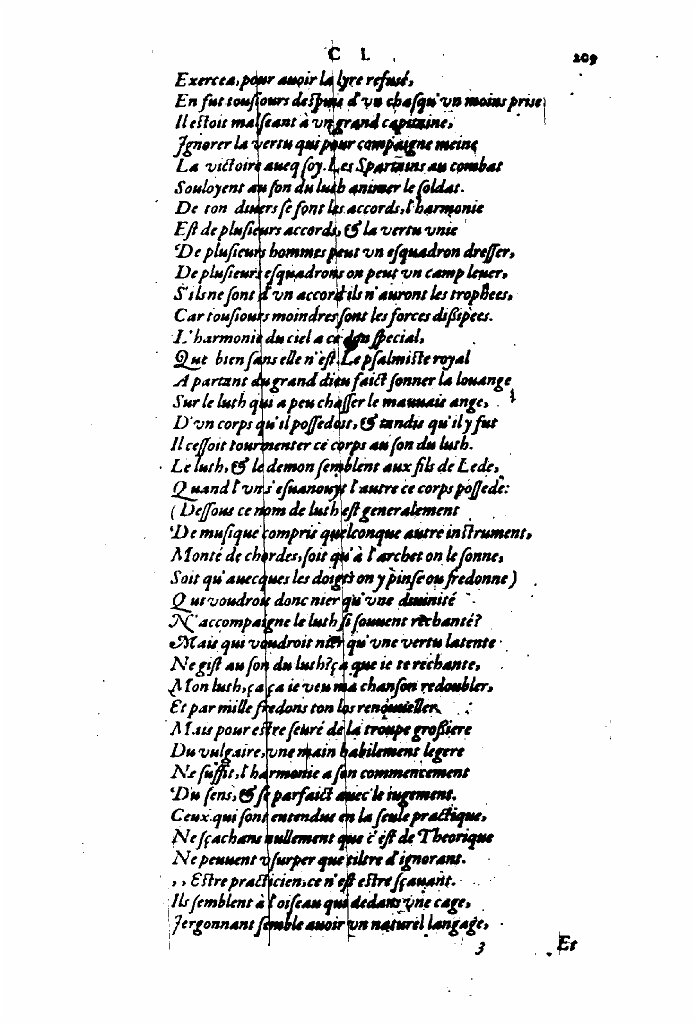 C L
209
Exercea, pour auoir la lyre refusé,
En fut tousiours despuis d'vn chasqu'vn moins prise
Il estoit malseant à vn grand capitaine,
Ignorer la vertu qui pour compaigne meine
La victoire aueq soy. Les Spartains au combat
Souloyent au son du luth animer le soldat.
De ton diuers se font les accords, l'harmonie
Est de plusieurs accords, & la vertu vnie
De plusieurs hommes peut vn esquadron dresser,
De plusieurs esquadrons on peut vn camp leuer,
S'ils ne sont d'vn accord ils n'auront les trophees,
Car tousiours moindres sont les forces dissipees.
L'harmonie du ciel a ce don special,
Que bien sans elle n'est. Le psalmiste royal
A partant du grand dieu faict sonner la louange
Sur le luth qui a peu chasser le mauuais ange,
D'vn corps qu'il possedoit, & tandis qu'il y fut
Il cessoit tourmenter ce corps au son du luth.
Le luth, & le demon semblent aux fils de Lede,
Quand l'vn s'esuanouyt l'autre ce corps possede:
(Dessous ce nom de luth est generalement
De musique compris quelconque autre instrument,
Monté de chordes, soit qu'à l'archet on le sonne,
Soit qu'auecques les doigts on y pinse ou fredonne)
Qui voudroit donc nier qu'vne diuinité
N'accompaigne le luth si souuent rechanté?
Mais qui voudroit nier qu'vne vertu latente
Ne gist au son du luth? ça que ie te rechante,
Mon luth, ça ça ie veu ma chanson redoubler,
Et par mille fredons ton los renouueller.
Mais pour estre seuré de la troupe grossiere
Du vulgaire, vne main habilement legere
Ne suffit, l'harmonie a son commencement
Du sens, & se parfaict auec le iugement.
Ceux qui sont entendus en la seule practique,
Ne sçachans nullement que c'est de Theorique
Ne peuuent vsurper que tiltre d'ignorant.
,, Estre practicien, ce n'est estre sçauant.
Ils semblent à l'oiseau qui dedans vne cage,
Iergonnant semble auoir vn naturel langage,
3
Et